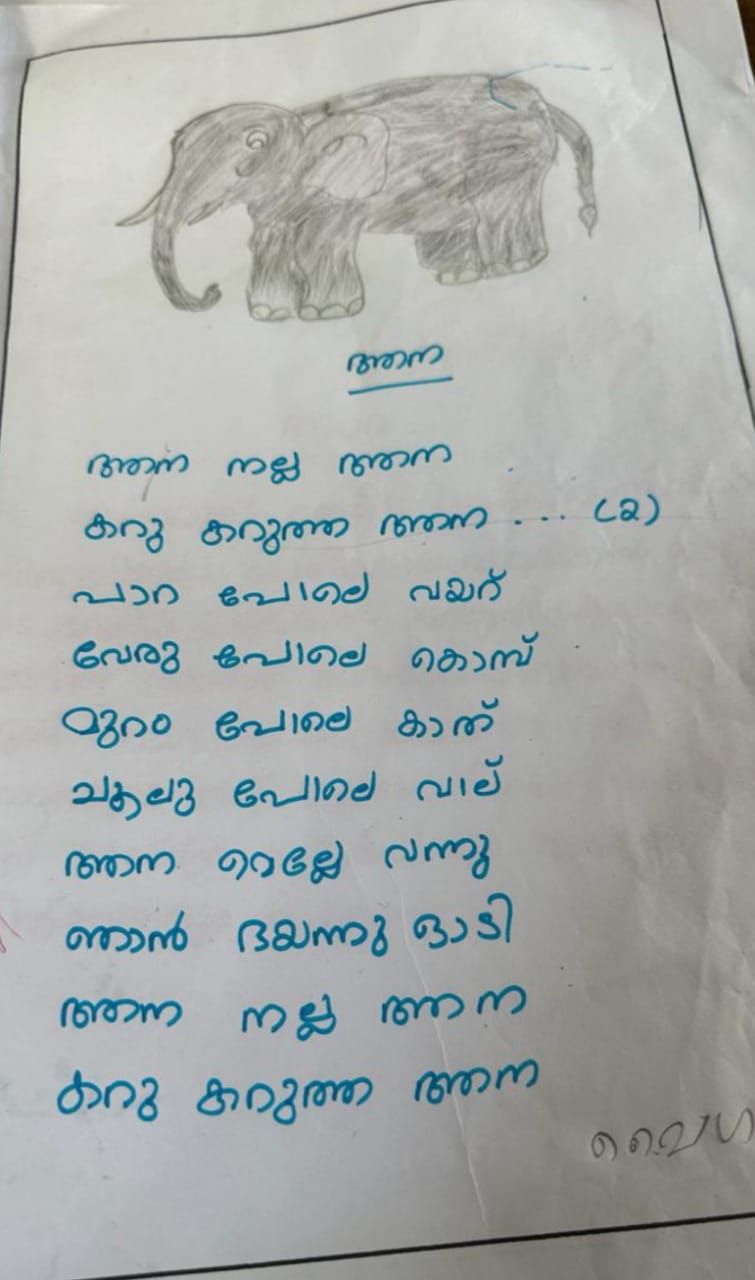 ആന
ആന നല്ല ആന
കറു കറുത്ത ആന ... (2)
പാറ പോലെ വയറ്
വേരു പോലെ കൊമ്പ്
മുറം പോലെ കാത്
ചൂലു പോലെ വാല്
ആന മെല്ലേ വന്നു
ഞാൻ ഭയന്നു ഓടി
ആന നല്ല ആന
കറു കറുത്ത ആന
വൈഗ